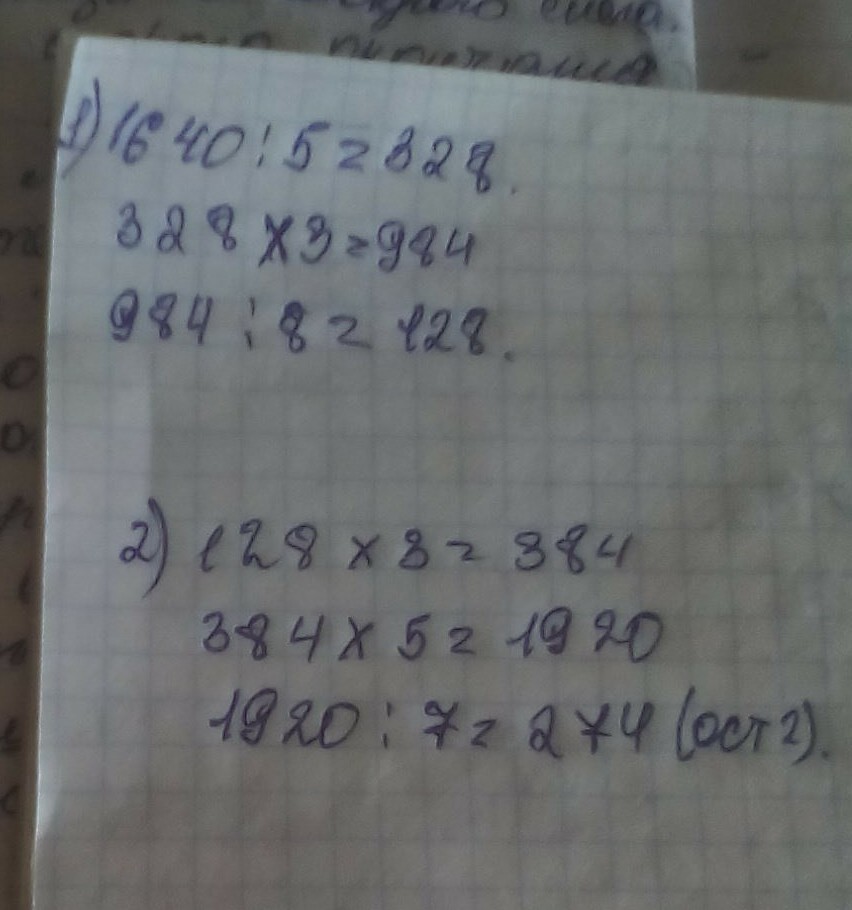 сила.
1) 1640 : 5 = 328.
328 × 3 = 984
984 : 8 = 128.
2) 128 × 3 = 384
384 × 5 = 1920
1920 : 7 = 274 (ост 2).